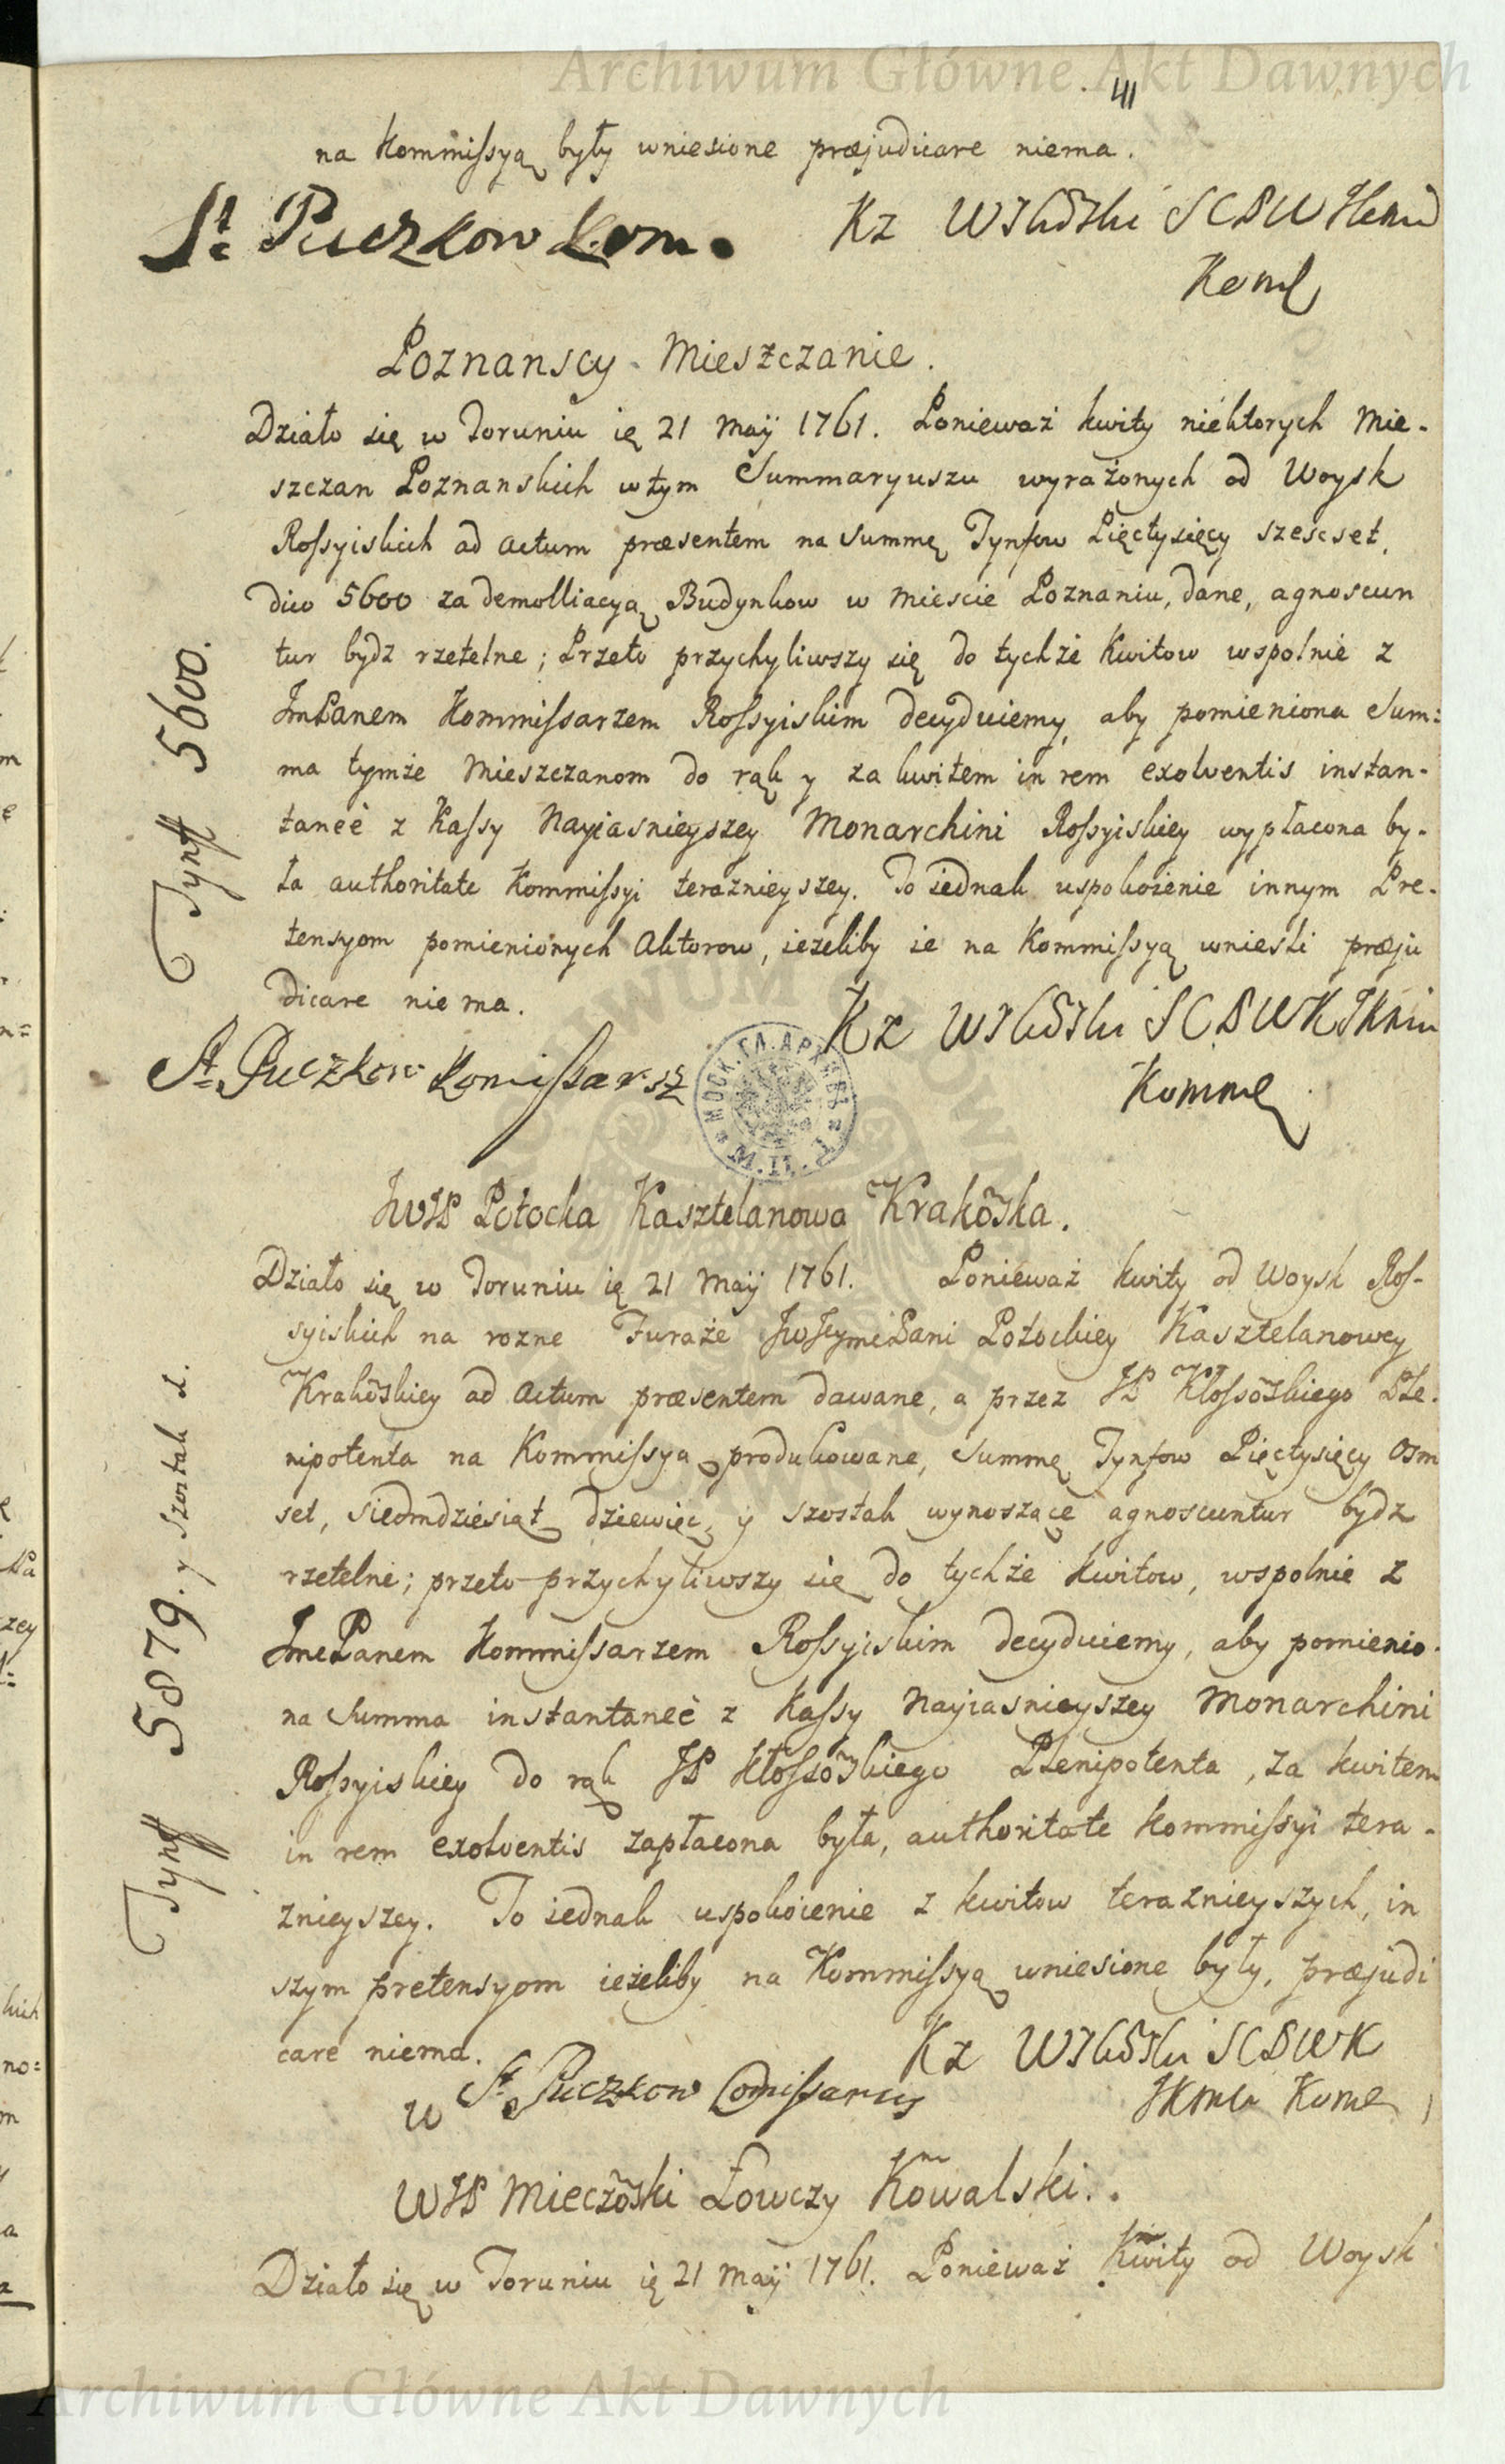 Archiwum Główne Akt Dawnych
41
na Kommissyą były wniesione præjudicare niema.
St. Puczkow Kom.
Kz
Poznanscy Mieszczanie.
Działo się w Toruniu ię 21 Maÿ 1761. Ponieważ kwity niektorych Mie-
szczan Poznanskich w tym Summaryuszu wyrażonych od Woysk
Rossyiskich ad actum præsentem na Summę Tynfow Pięctysięcy szescset,
dico 5600 za demolliacyą Budynkow w Miescie Poznaniu, dane, agnoscun
tur bydz rzetelne; Przeto przychyliwszy się do tychże Kwitow wspolnie z
JmPanem Kommissarzem Rossyiskim decyduiemy, aby pomieniona Sum:
ma tymże Mieszczanom do rąk y za kwitem in rem exolventis instan-
taneè z Kassy Nayiasnieyszey Monarchini Rossyiskiey wypłacona by-
ła authoritate Kommissyi teraznieyszey. To iednak uspokoienie innym Pre-
tensyom pomienionych Aktorow, ieżeliby ie na Kommissyą wniesli præju
dicare nie ma.
Tynff 5600.
Kz
St. Puczkow Komissarsz
МОСК. ГЛ. АРХИВЪ
JWJP Potocka Kasztelanowa Krakoska.
Działo się w Toruniu ię 21 Maÿ 1761. Ponieważ kwity od Woysk Ros-
syiskich na rozne Furaże JwJeymciPani Potockiey Kasztelanowey
Krakoskiey ad Actum præsentem dawane, a przez JP Kłossoskiego Ple-
nipotenta na Kommissyą produkowane, Summę Tynfow Pięctysięcy Osm
set, siedmdziesiąt dziewięc, y szostak wynoszące agnoscuntur bydz
rzetelne; przeto przychyliwszy się do tychże kwitow, wspolnie z
JmcPanem Kommissarzem Rossyiskim decyduiemy, aby pomienio-
na Summa instantaneè z Kassy Nayiasnieyszey Monarchini
Rossyiskiey do rąk JP Kłossoskiego Plenipotenta, za kwitem
in rem exolventis zapłacona była, authoritate Kommissyi tera-
znieyszey. To iednak uspokoienie z kwitow teraznieyszych, in
szym pretensyom ieżeliby na Kommissyą wniesione były, præjudi
care niema.
Tynff 5879. y szostak 1.
Kz
St. Puczkow Comissarius
WJP Mieczoski Łowczy Kowalski.
Działo się w Toruniu ię 21 Maÿ 1761. Ponieważ Kwity od Woysk
Archiwum Główne Akt Dawnych